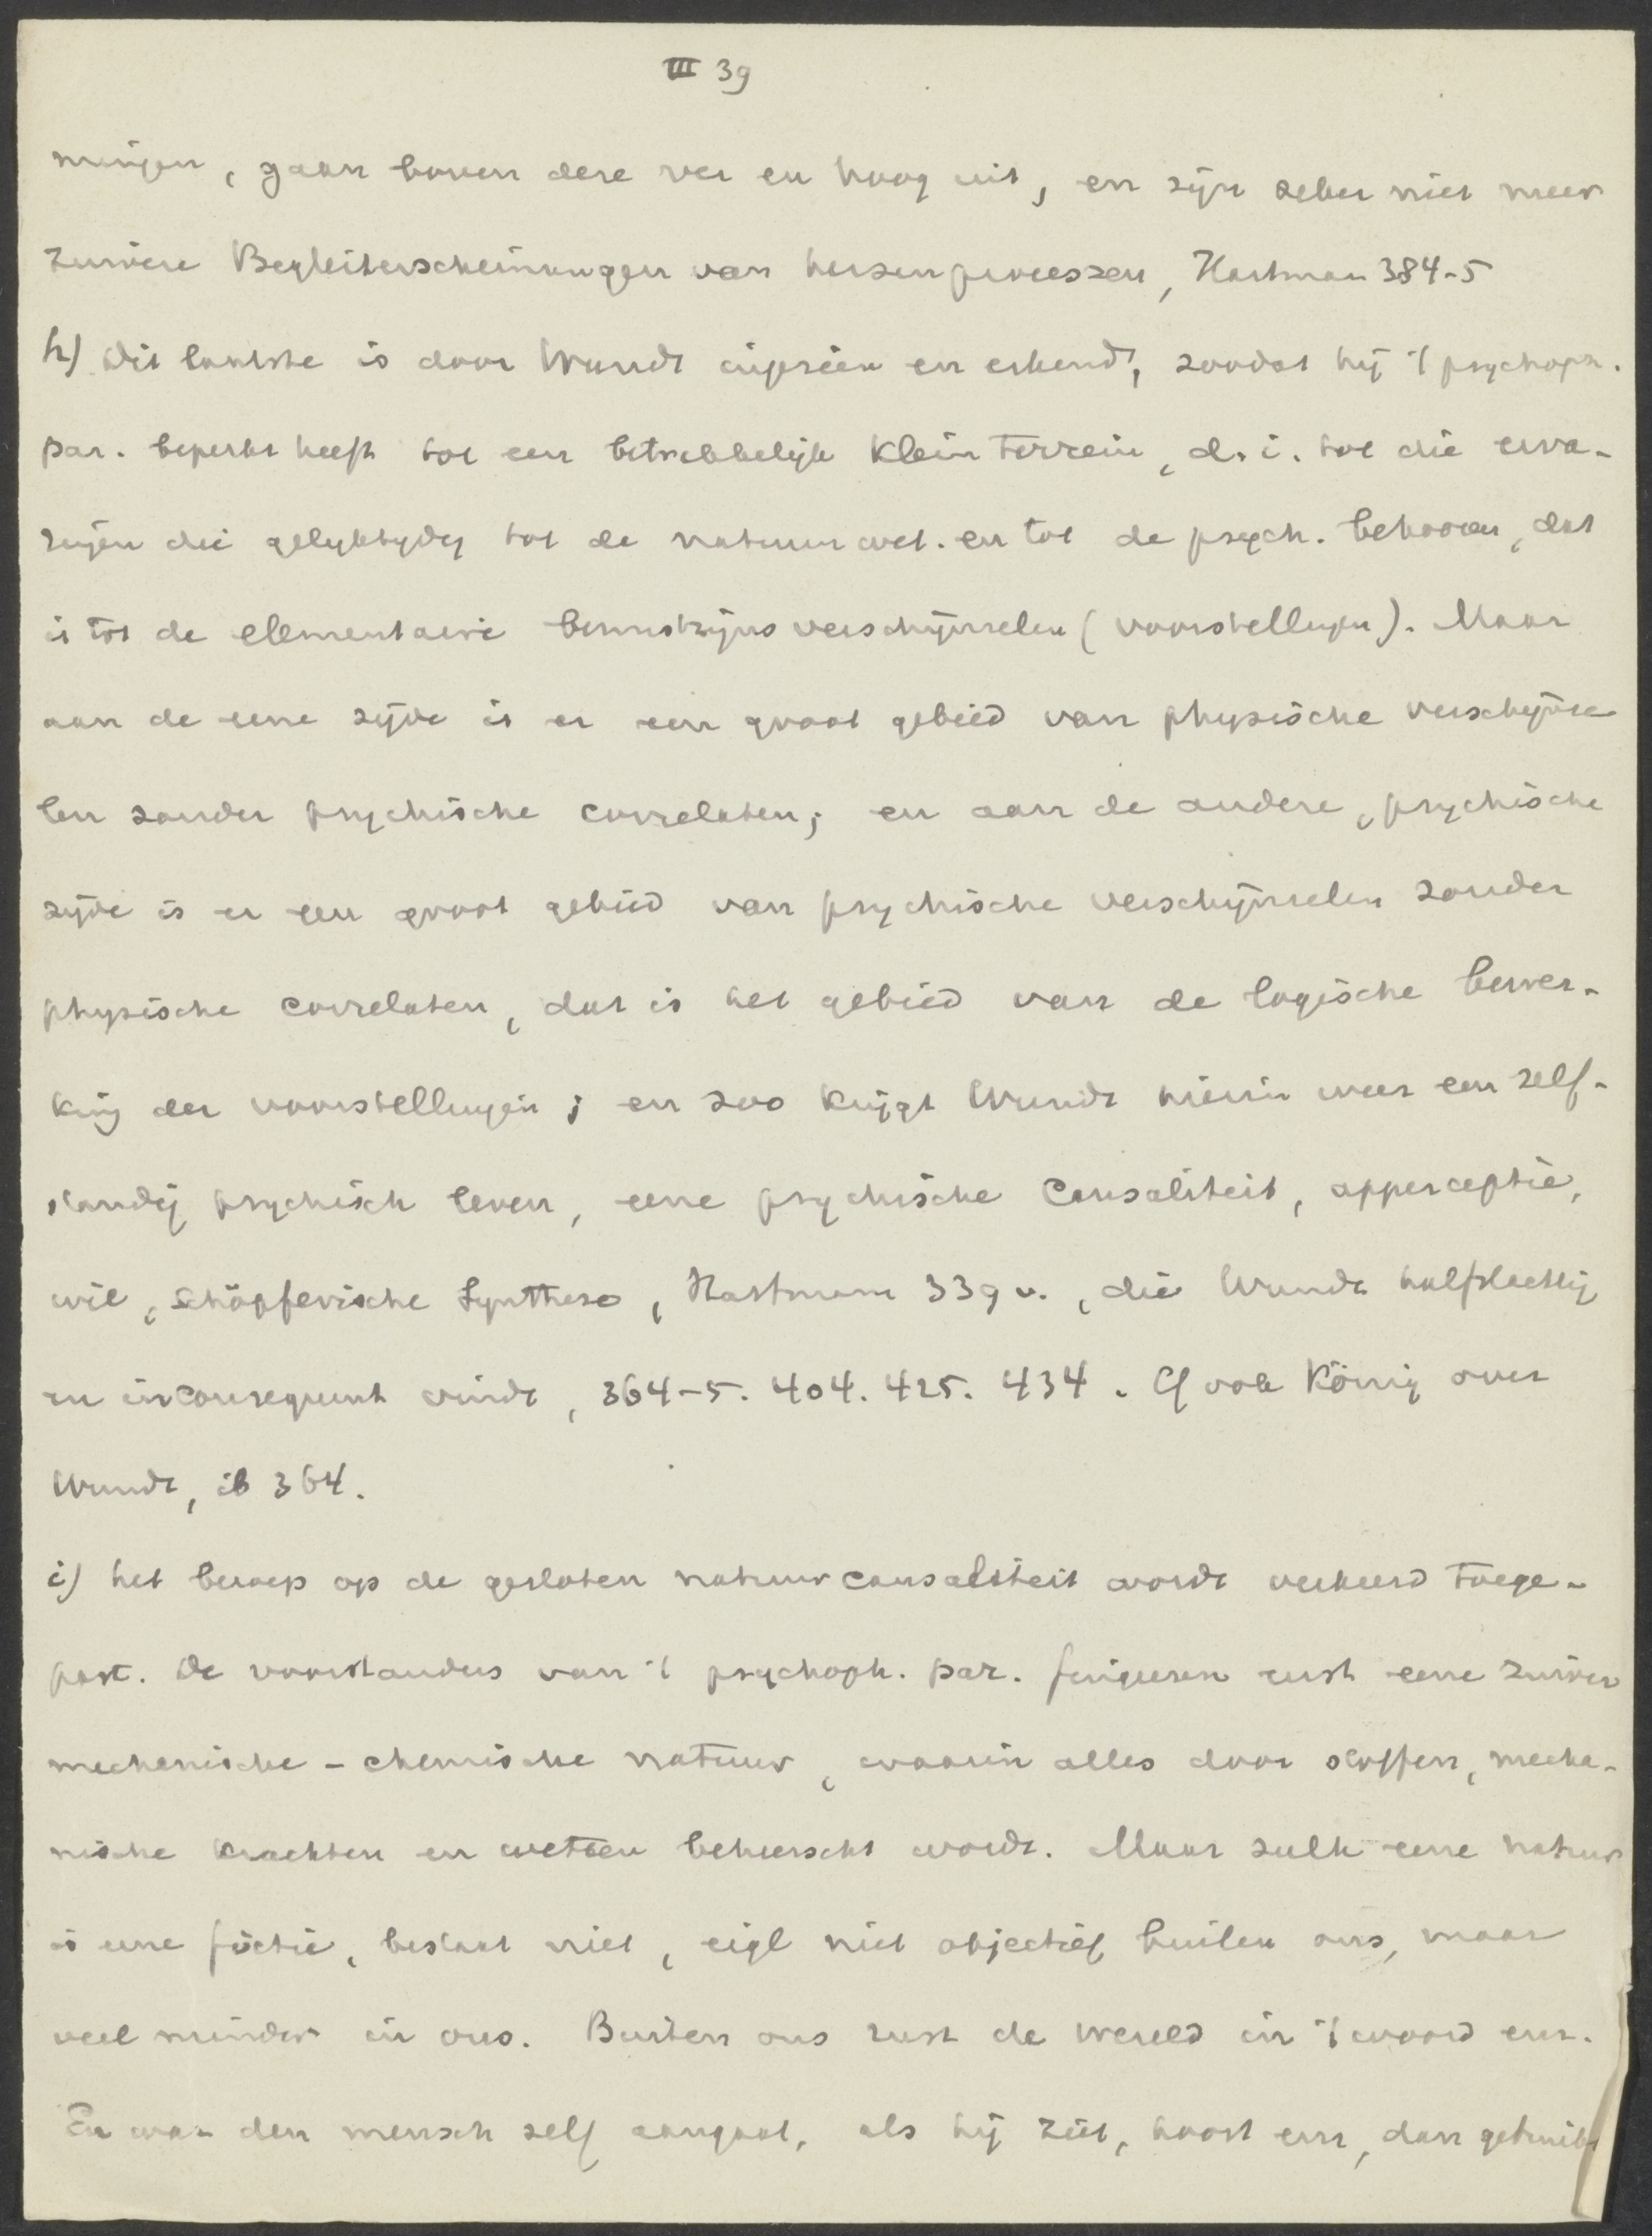 III 39
ningen, gaan boven deze ver en hoog uit, en zijn zeker niet meer
zuivere Begleiterscheinungen van hersenprocessen, Hartman 384-5
h) Dit laatste is door Wundt ingezien en erkend, zoodat hij 't psychoph.
par. beperkt heeft tot een betrekkelijk klein terrein, d.i. tot die erva-
ringen die gelyktydig tot de natuurwet. en tot de psych. behooren, dat
is tot de elementaire bewustzijnsverschijnselen (voorstellingen). Maar
aan de eene zijde is er een groot gebied van physische verschijnse
len zonder psychische correlaten; en aan de andere, psychische
zijde is er een groot gebied van psychische verschijnselen zonder
physische correlaten, dat is het gebied van de logische bewer-
king der voorstellingen; en zoo krijgt Wundt hierin weer een zelf-
standig psychisch leven, eene psychische Causaliteit, apperceptie,
wil, schöpferische Synthese, Hartmann 339 v., die Wundt halfslachtig
en inconsequent vindt, 364-5. 404. 425. 434. Cf ook König over
Wundt, ib 364.
i) het beroep op de gesloten natuurcausaliteit wordt verkeerd toege-
past. De voorstanders van 't psychoph. par. fingeren eerst eene zuiver
mechanische-chemische natuur, waarin alles door stoffen, mecha-
nische krachten en wetten beheerscht wordt. Maar zulk eene natuur
is eene fictie, bestaat niet, eigl niet objectief buiten ons, maar
veel minder in ons. Buiten ons rust de wereld in 't woord enz.
En wat den mensch zelf aangaat, als hij ziet, hoort enz, dan gebruikt